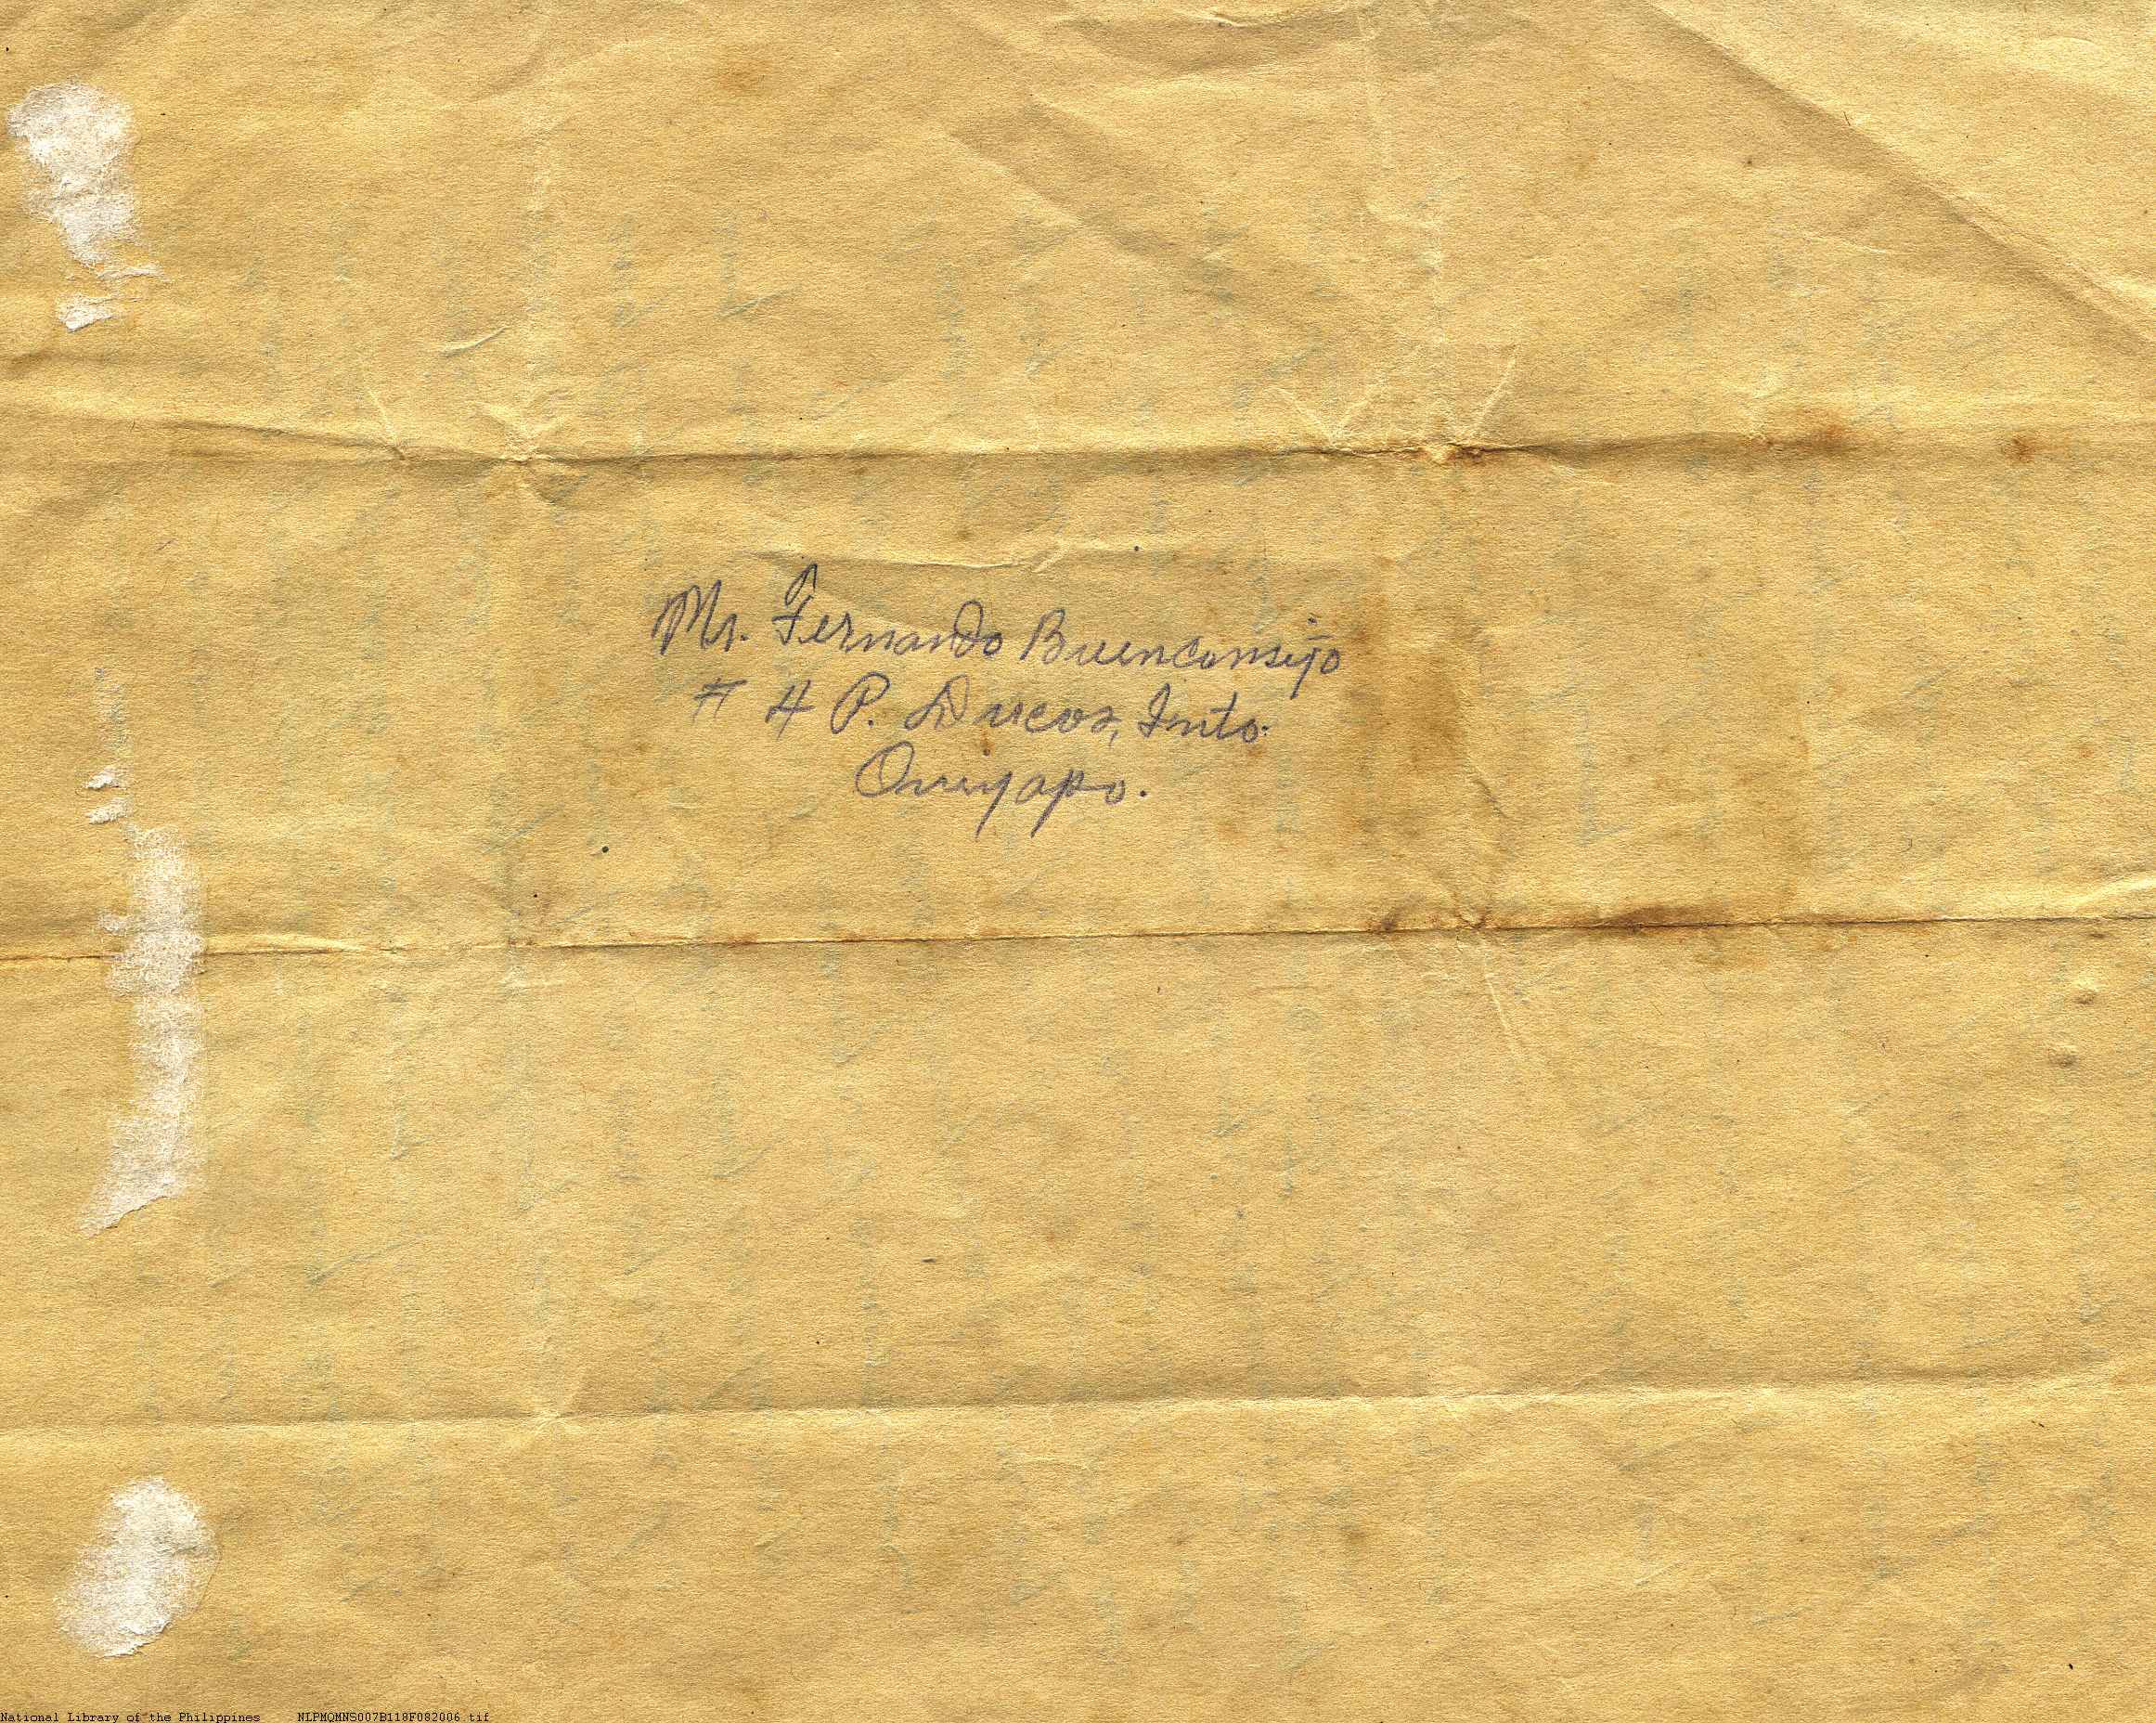 Mr. Fernando Buenconsijo
# 4 P. Ducos, Into.
Quiyapo.
National Library of the Philippines NLPMQMNS007B118F082006.tif